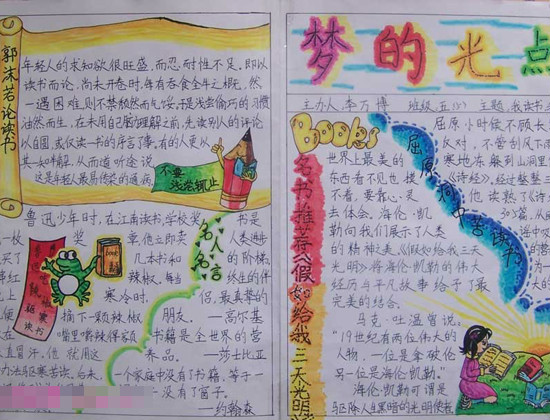 郭沫若论读书
年轻人的求知欲很旺盛,而忍耐性不足。即以
读书而论,尚未开卷时,每有吞食全牛之概,然
一遇困难,则不禁颓然而气馁,于是浅尝偷巧的习惯
油然而生,在未用自己的理解之前,先读别人的评论
以自圆,或仅读一书的序言了事,有的人更以
其一知半解,从而道听途说
这是年轻人最易传染的通病
不要
浅尝辄止
鲁迅少年时,在江南读书,学校奖
一枚
奖
章,他立即卖
几本书和
辣椒,每当
寒冷时,
摘下一颗辣椒
嘴里嚼辣得额
直冒汗,他就用这
办法驱寒读书,后来,
鲁迅
嚼辣椒
驱寒
读书
book
名人名言
书是
人类进步
的阶梯,
终生的伴
侣,最真挚的
朋友。 —高尔基
书籍是全世界的营
养品。 —莎士比亚
一个家庭中没有了书籍,等于一
没有了窗子。
—约翰森
梦的光点
主办人:李万博 班级:五(5) 主题:我读书
Books
名书推荐《假如给我三天光明》
世界上最美的
东西看不见也摸
不着,要靠心灵
去体会。海伦·凯
勒向我们展示了人类
的精神之美,《假如给我三天
光明》将海伦·凯勒的伟大
经历与平凡故事给予了最
完美的结合。
马克·吐温曾说:
“19世纪有两位伟大的
人物,一位是拿破仑,
另一位是海伦·凯勒。”
海伦·凯勒可谓是
驱除人类黑暗的光明使者
屈原洞中苦读书
屈原小时候不顾长
反对,不管刮风下雨
寒地冻,躲到山洞里
《诗经》,经过整整三
他读熟了《诗
305篇,从